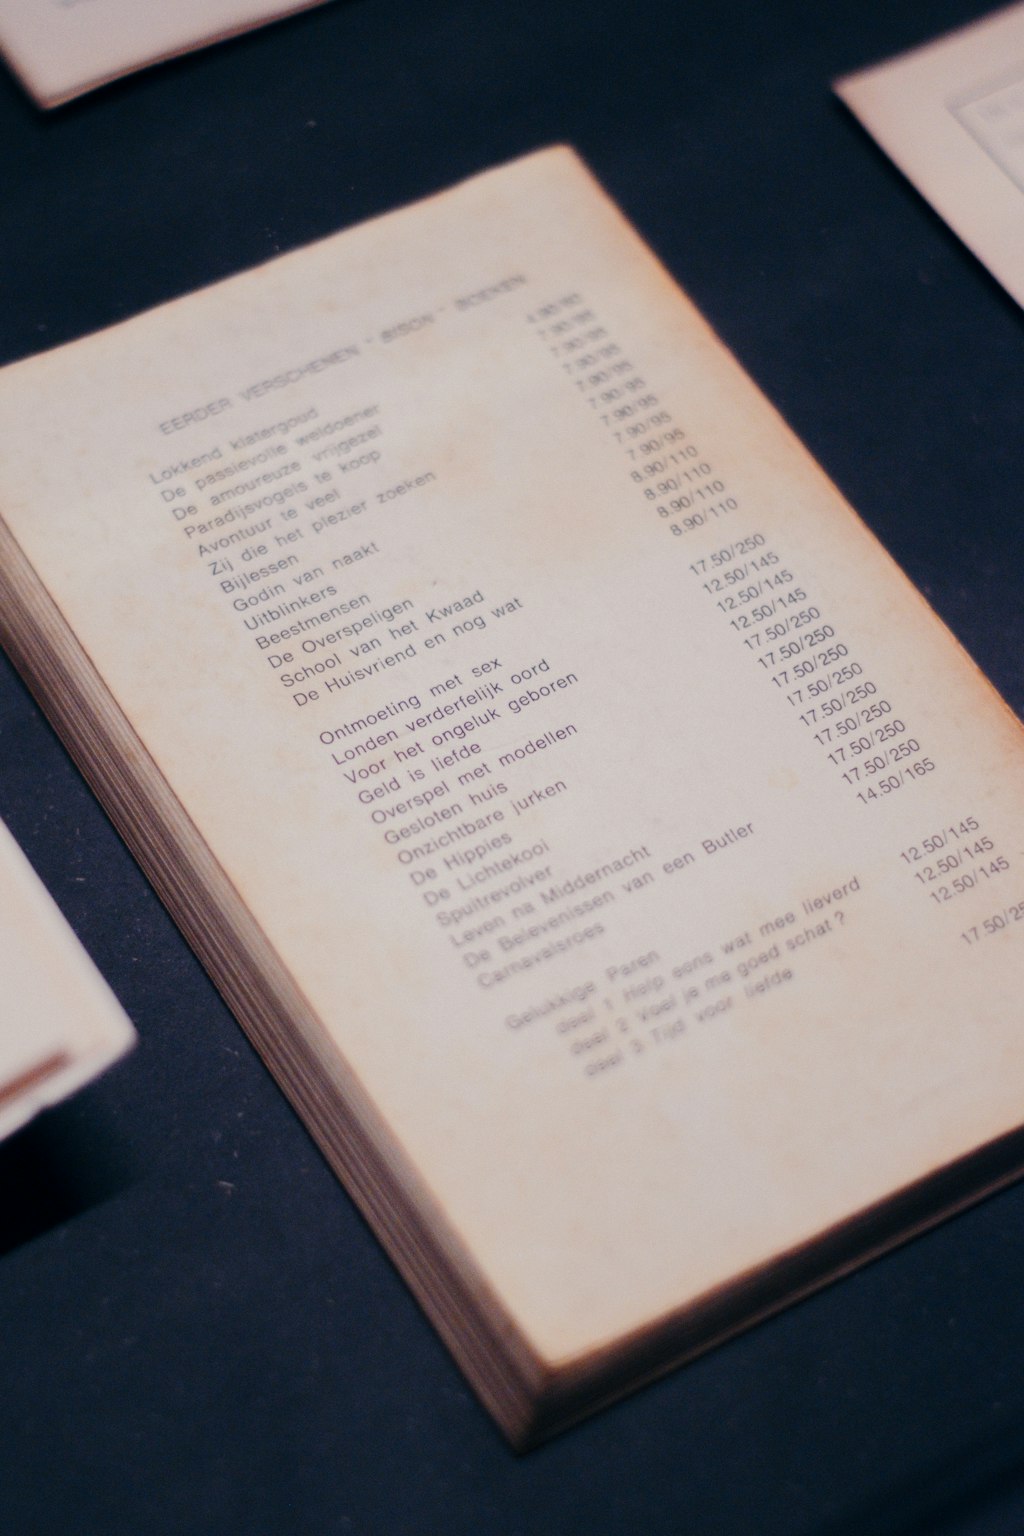 EERDER VERSCHENEN "BISON" BOEKEN
Lokkend klatergoud
De passievolle weldoener 7.90/95
De amoureuze vrijgezel 7.90/95
Paradijsvogels te koop 7.90/95
Avontuur te veel 7.90/95
Zij die het plezier zoeken 7.90/95
Bijlessen 7.90/95
Godin van naakt 7.90/95
Uitblinkers 7.90/95
Beestmensen 8.90/110
De Overspeligen 8.90/110
School van het Kwaad 8.90/110
De Huisvriend en nog wat 8.90/110
Ontmoeting met sex 17.50/250
Londen verderfelijk oord 12.50/145
Voor het ongeluk geboren 12.50/145
Geld is liefde 12.50/145
Overspel met modellen 17.50/250
Gesloten huis 17.50/250
Onzichtbare jurken 17.50/250
De Hippies 17.50/250
De Lichtekooi 17.50/250
Spuitrevolver 17.50/250
Leven na Middernacht 17.50/250
De Belevenissen van een Butler 17.50/250
Carnavalsroes 14.50/165
Gelukkige Paren
deel 1 Help eens wat mee lieverd 12.50/145
deel 2 Voel je me goed schat? 12.50/145
deel 3 Tijd voor liefde 12.50/145
17.50/25